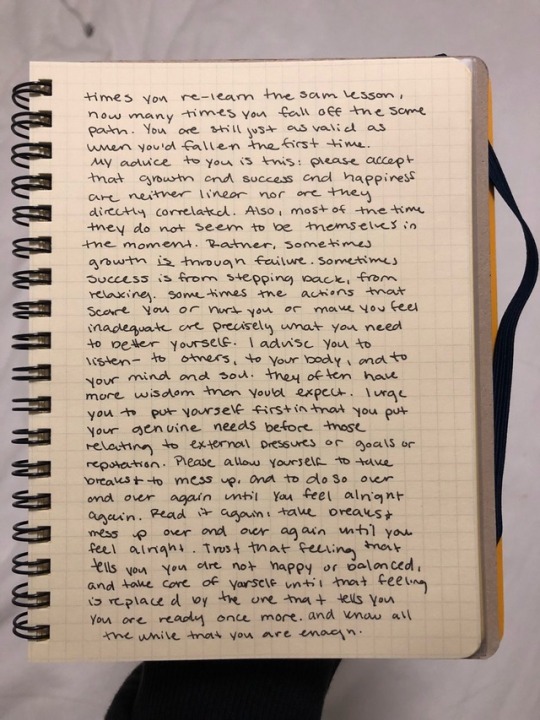 times you re-learn the same lesson,
how many times you fall off the same
path. You are still just as valid as
when you'd fallen the first time.
My advice to you is this: please accept
that growth and success and happiness
are neither linear nor are they
directly correlated. Also, most of the time
they do not seem to be themselves in
the moment. Rather, sometimes
growth is through failure. Sometimes
success is from stepping back, from
relaxing. Sometimes the actions that
scare you or hurt you or make you feel
inadequate are precisely what you need
to better yourself. I advise you to
listen- to others, to your body, and to
your mind and soul. They often have
more wisdom than you'd expect. I urge
you to put yourself first in that you put
your genuine needs before those
relating to external pressures or goals or
reputation. Please allow yourself to take
breaks & to mess up, and to do so over
and over again until you feel alright
again. Read it again: take breaks &
mess up over and over again until you
feel alright. Trust that feeling that
tells you you are not happy or balanced,
and take care of yourself until that feeling
is replaced by the one that tells you
you are ready once more. and know all
the while that you are enough.